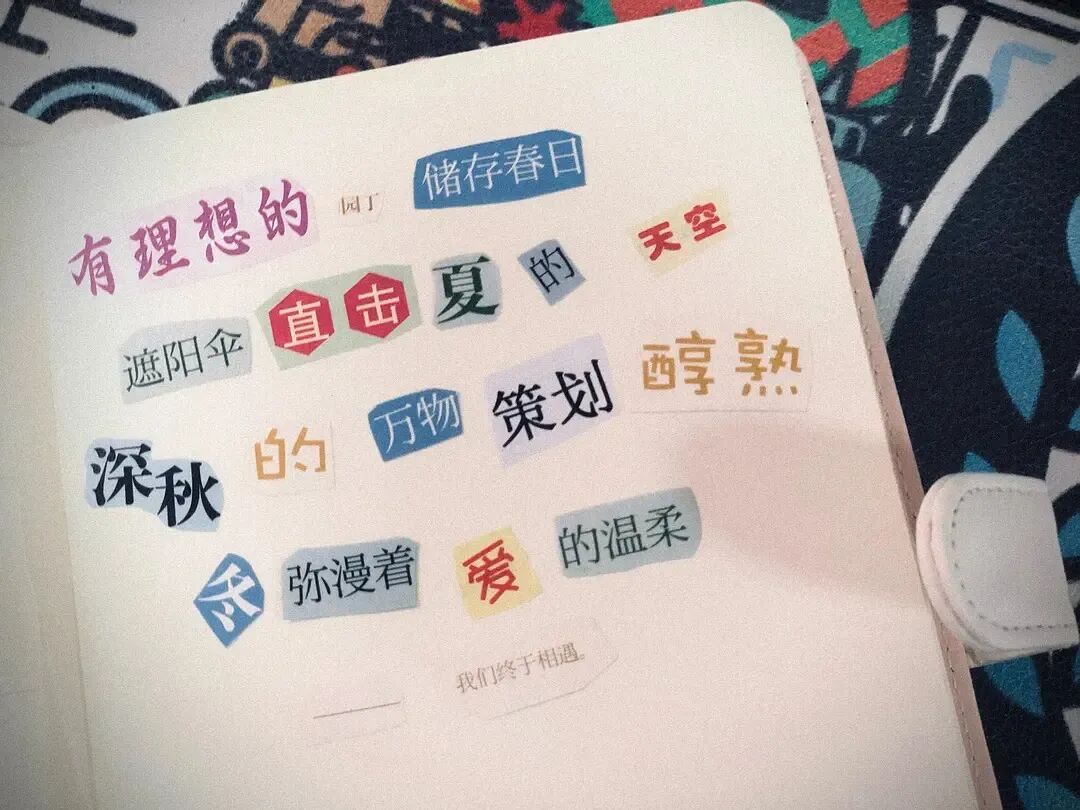 有理想的 园丁 储存春日
遮阳伞 直击 夏 的 天空
深秋 的 万物 策划 醇熟
冬 弥漫着 爱 的温柔
——我们终于相遇。